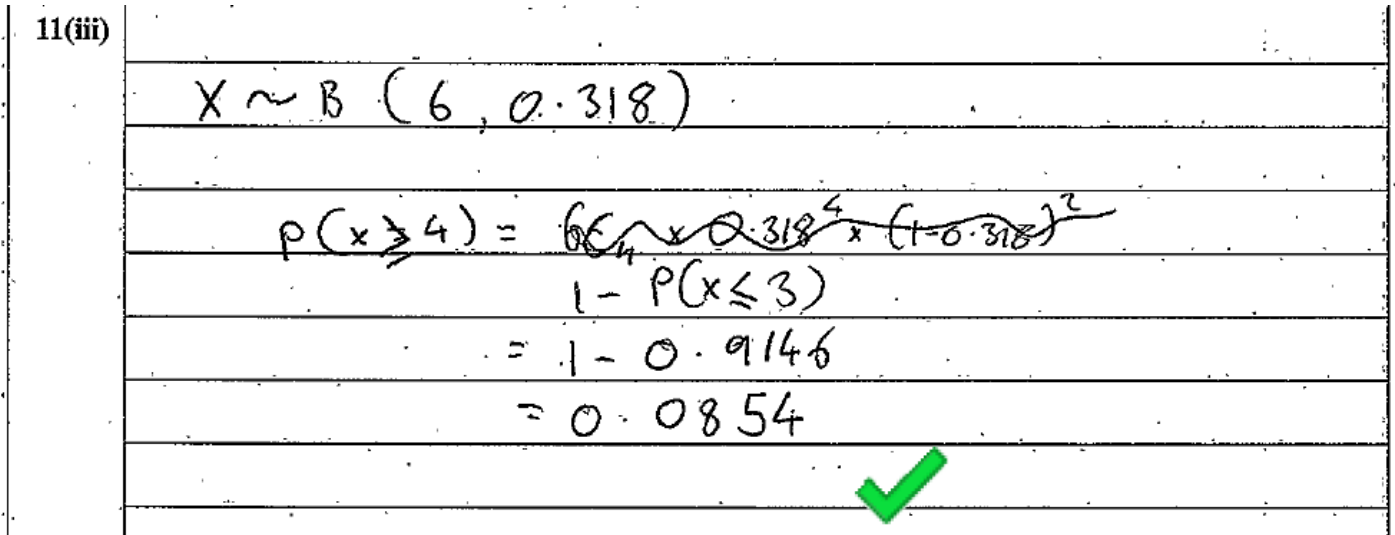 11(iii)
X ~ B (6, 0.318)
P(x ≥ 4) = 6C4 x 0.318^4 x (1-0.318)^2
1 - P(x ≤ 3)
= 1 - 0.9146
= 0.0854